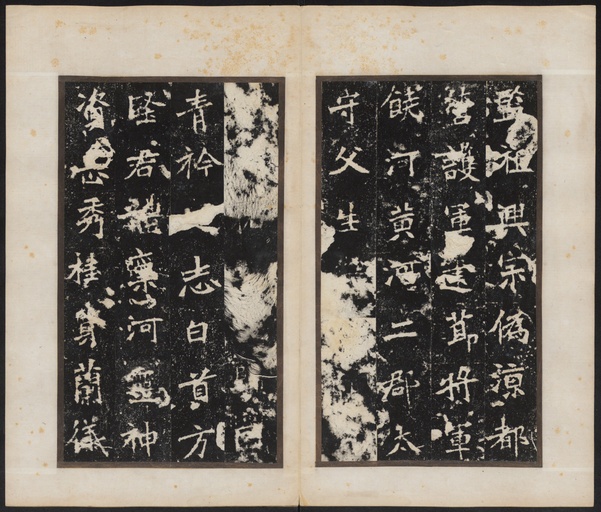 濫祖興宗偽涼都
營護軍建節將軍
饒河黃河二郡太
守父生
青衿志白首方
堅君體稟河靈神
資秀桂質蘭儀